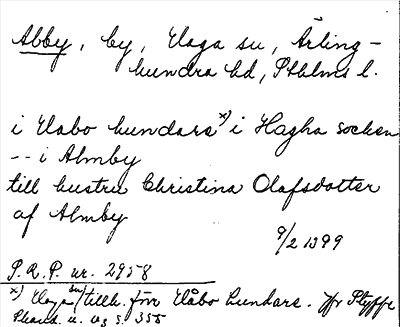 Abby, by, Haga sn, Ärling-
hundra hd, Sthlms l.
i Habo hundare x) i Hagha socken
-- i Almby
till hustru Christina Olafsdotter
af Almby
9/2 1399
P.R.P. nr. 2958
x) Haga sn tillh. förr Håbo hundare. Jfr Styffe
Skand. u. Us s. 355